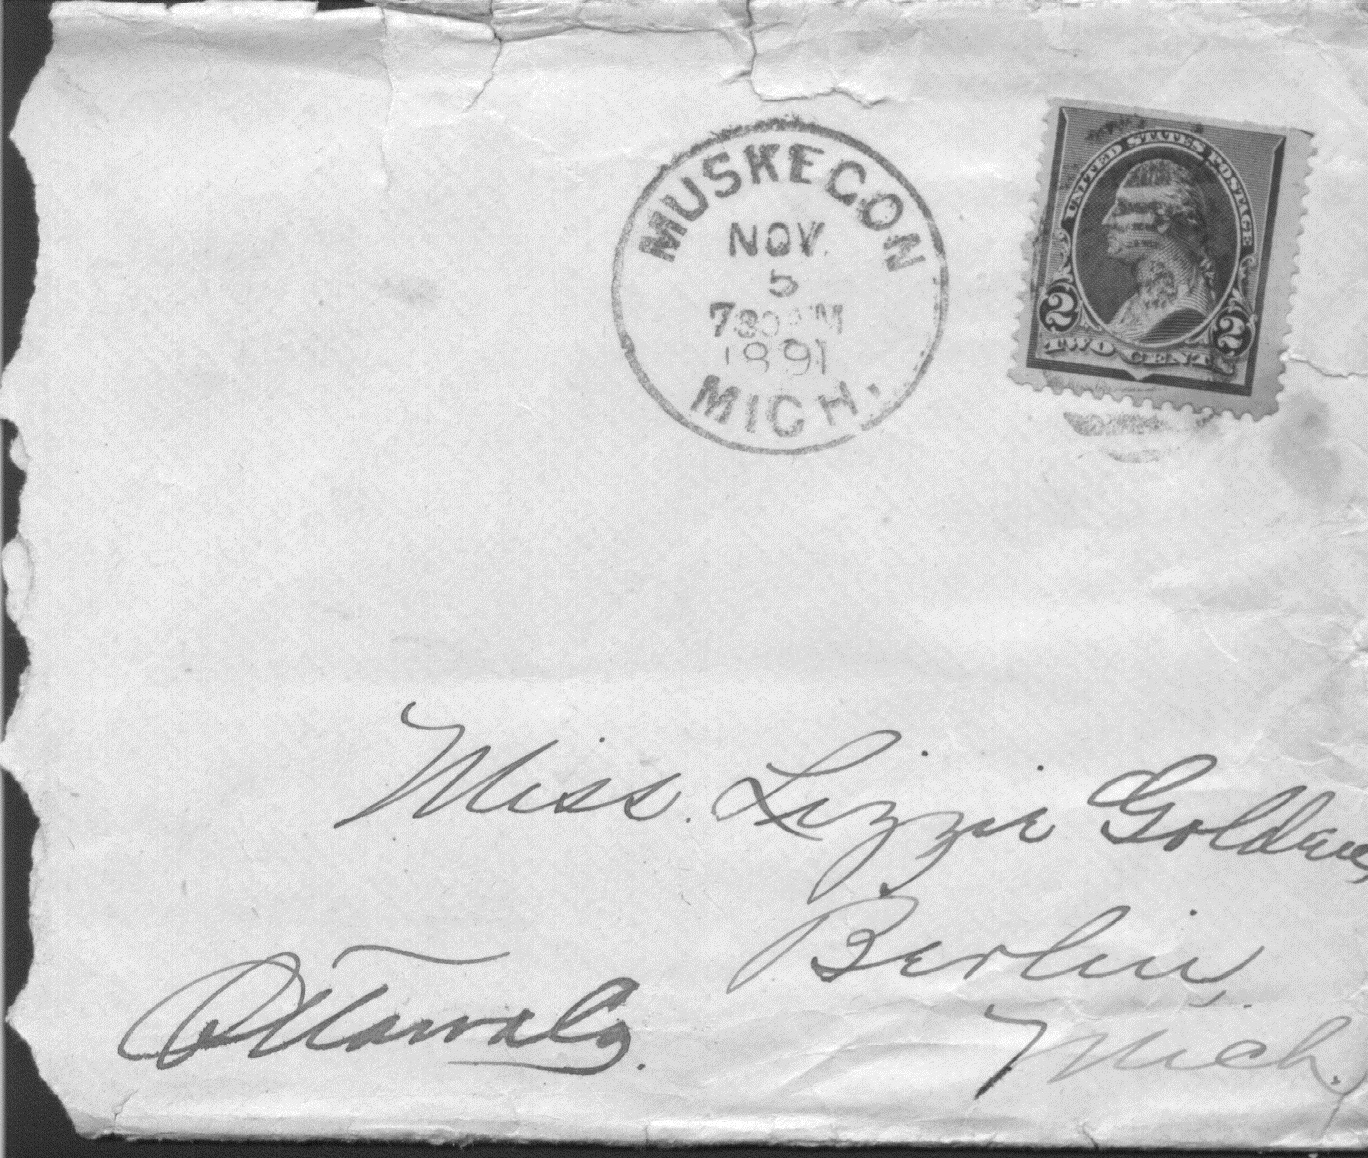 MUSKEGON
NOV.
5
730 AM
1891
MICH.
UNITED STATES POSTAGE
2 2
TWO CENTS
Miss. Lizzie Golden,
Berlin,
Mich.
Ottawa Co.